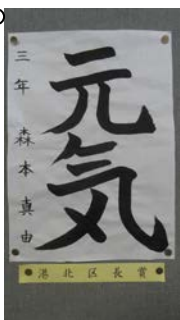 元気
三年 森本真由
港北区長賞